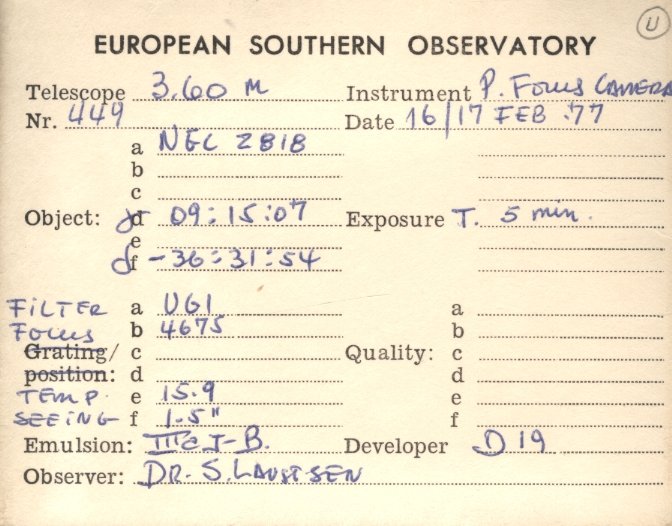 U
EUROPEAN SOUTHERN OBSERVATORY
Telescope 3.60 M Instrument P. Focus CAMERA
Nr. 449 Date 16/17 FEB .77
a NGC 2818
b
c
Object: α d 09:15:07 Exposure T. 5 min.
e
δ f -36:31:54
FILTER a UG1 a
Focus b 4675 b
Grating/ c Quality: c
position: d d
TEMP. e 15.9 e
SEEING f 1.5" f
Emulsion: IIIaJ-B. Developer D19
Observer: DR. S. LAUSTSEN